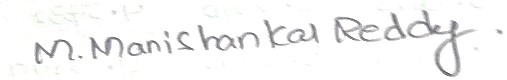 M. Manishankar Reddy.